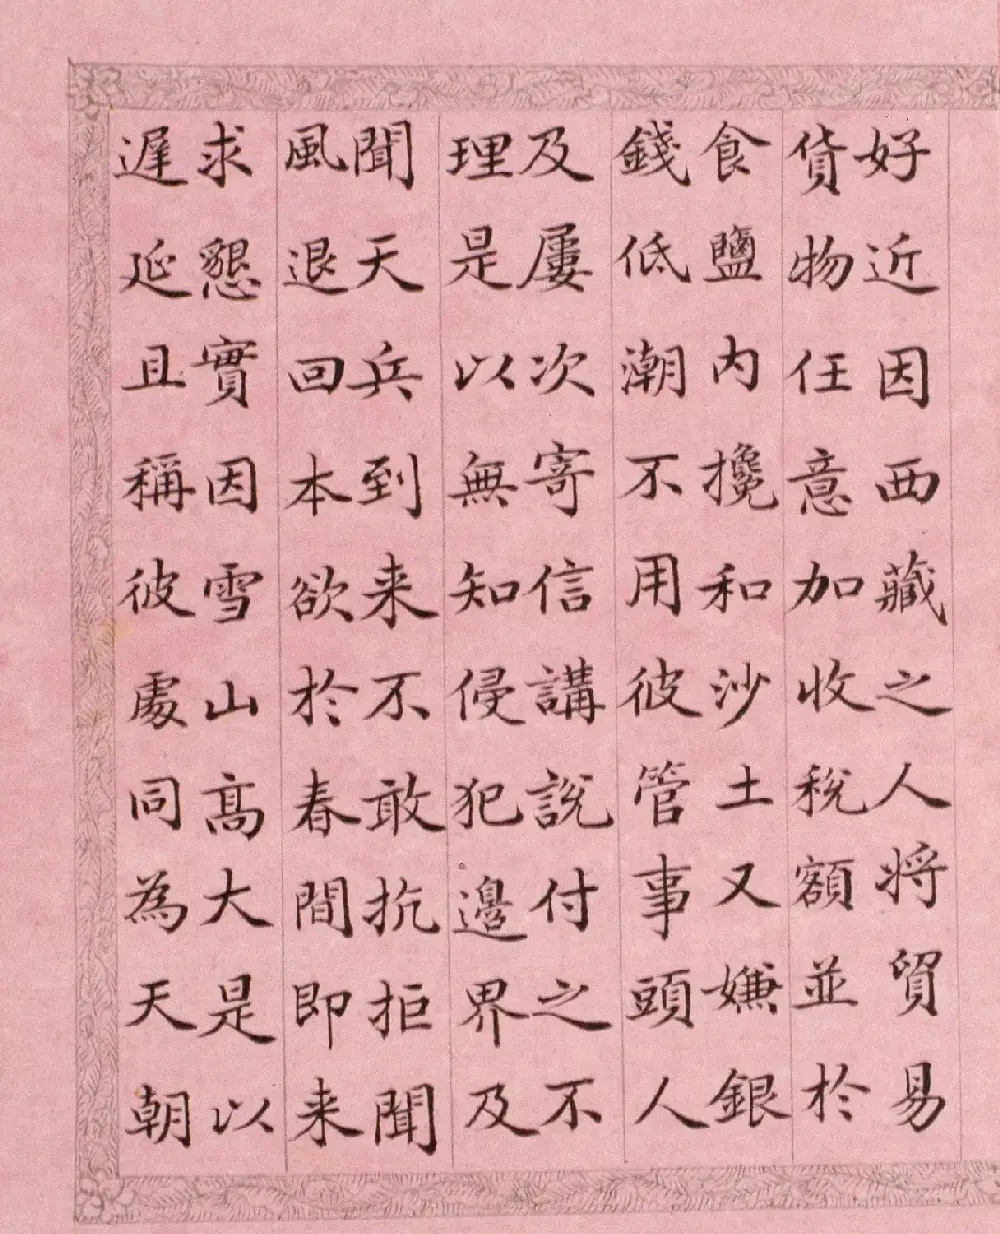 好近因西藏之人將貿易
貨物任意加收稅額並於
食鹽内攙和沙土又嫌銀
錢低潮不用彼管事頭人
及屢次寄信講說付之不
理是以無知侵犯邊界及
聞天兵到来不敢抗拒聞
風退回本欲於春間即来
求懇實因雪山高大是以
遲延且稱彼處同為天朝